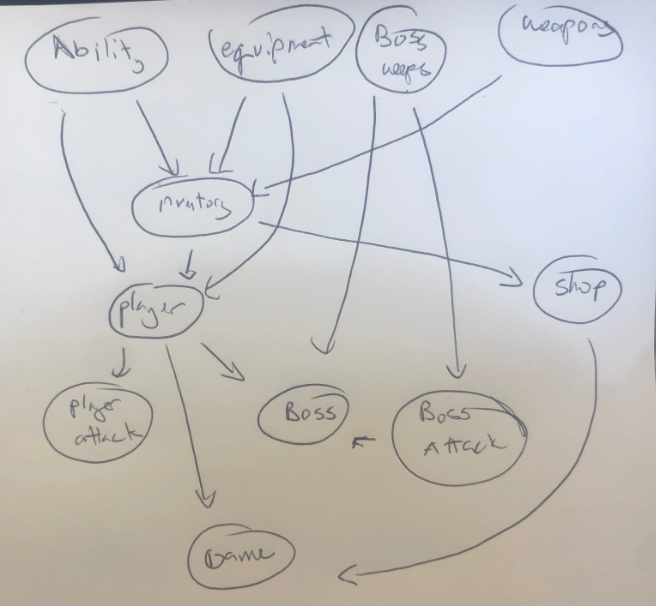 Ability
equipment
Boss
weeps
weapons
invntory
player
shop
player
attack
Boss
Boss
Attack
Game